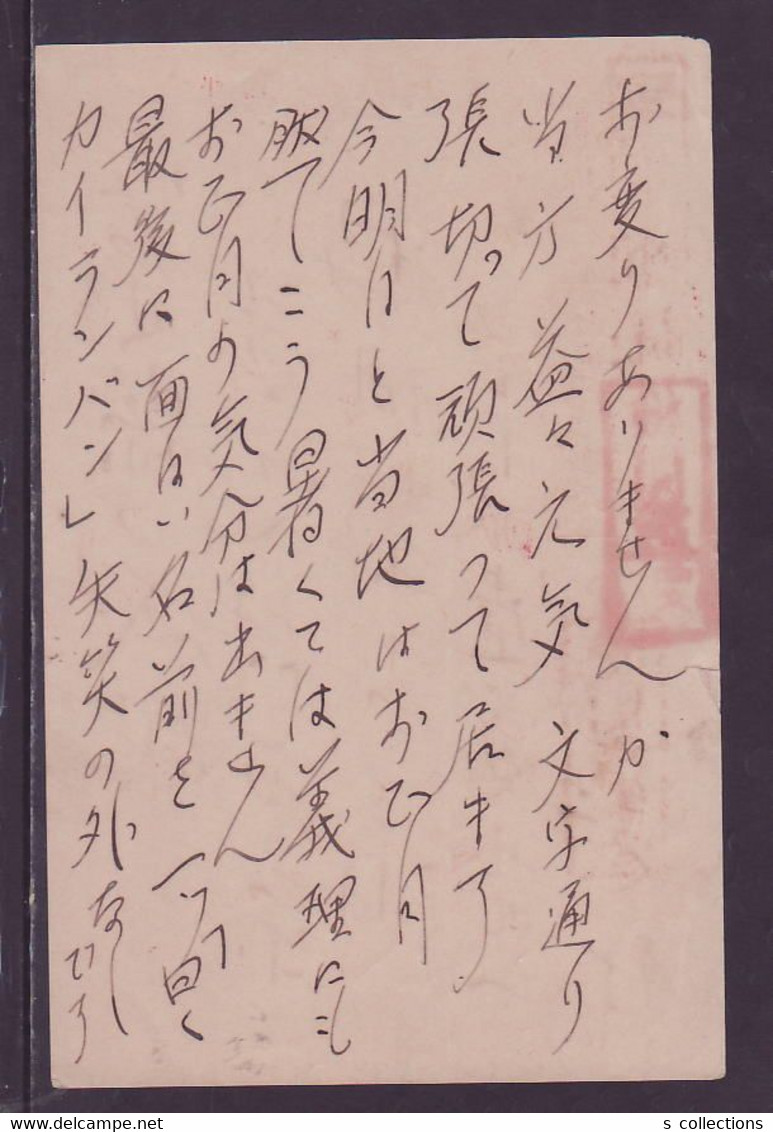 お変りありませんか
当方益々元気 文字通り
張切って頑張って居ます
今明日と当地はお正月
してこう暑くては義理にも
お正月の気分は出ません
最後に面白い名前を一ツ 曰く
カイランバン」失笑の外なしです
s collections